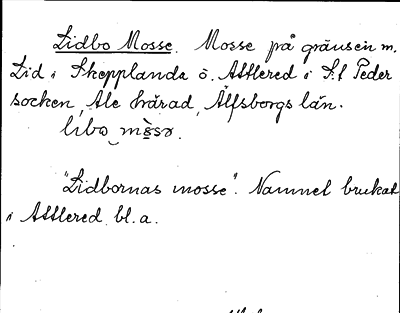 Lidbo Mosse. Mosse på gränsen m.
Lid i Skepplanda o. Attlered i S:t Peder
socken, Ale härad, Älfsborgs län.
libo mɛ̀sə.
"Lidbornas mosse". Namnet brukat
i Attlered bl. a.